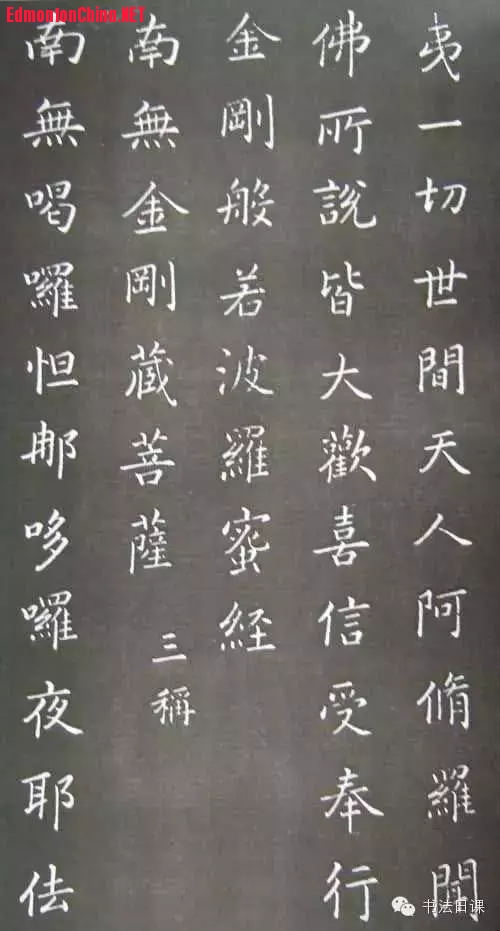 EdmontonChina.NET
夷一切世間天人阿脩羅聞
佛所說皆大歡喜信受奉行
金剛般若波羅蜜経
南無金剛藏菩薩 三稱
南無喝囉怛那哆囉夜耶佉
书法日课